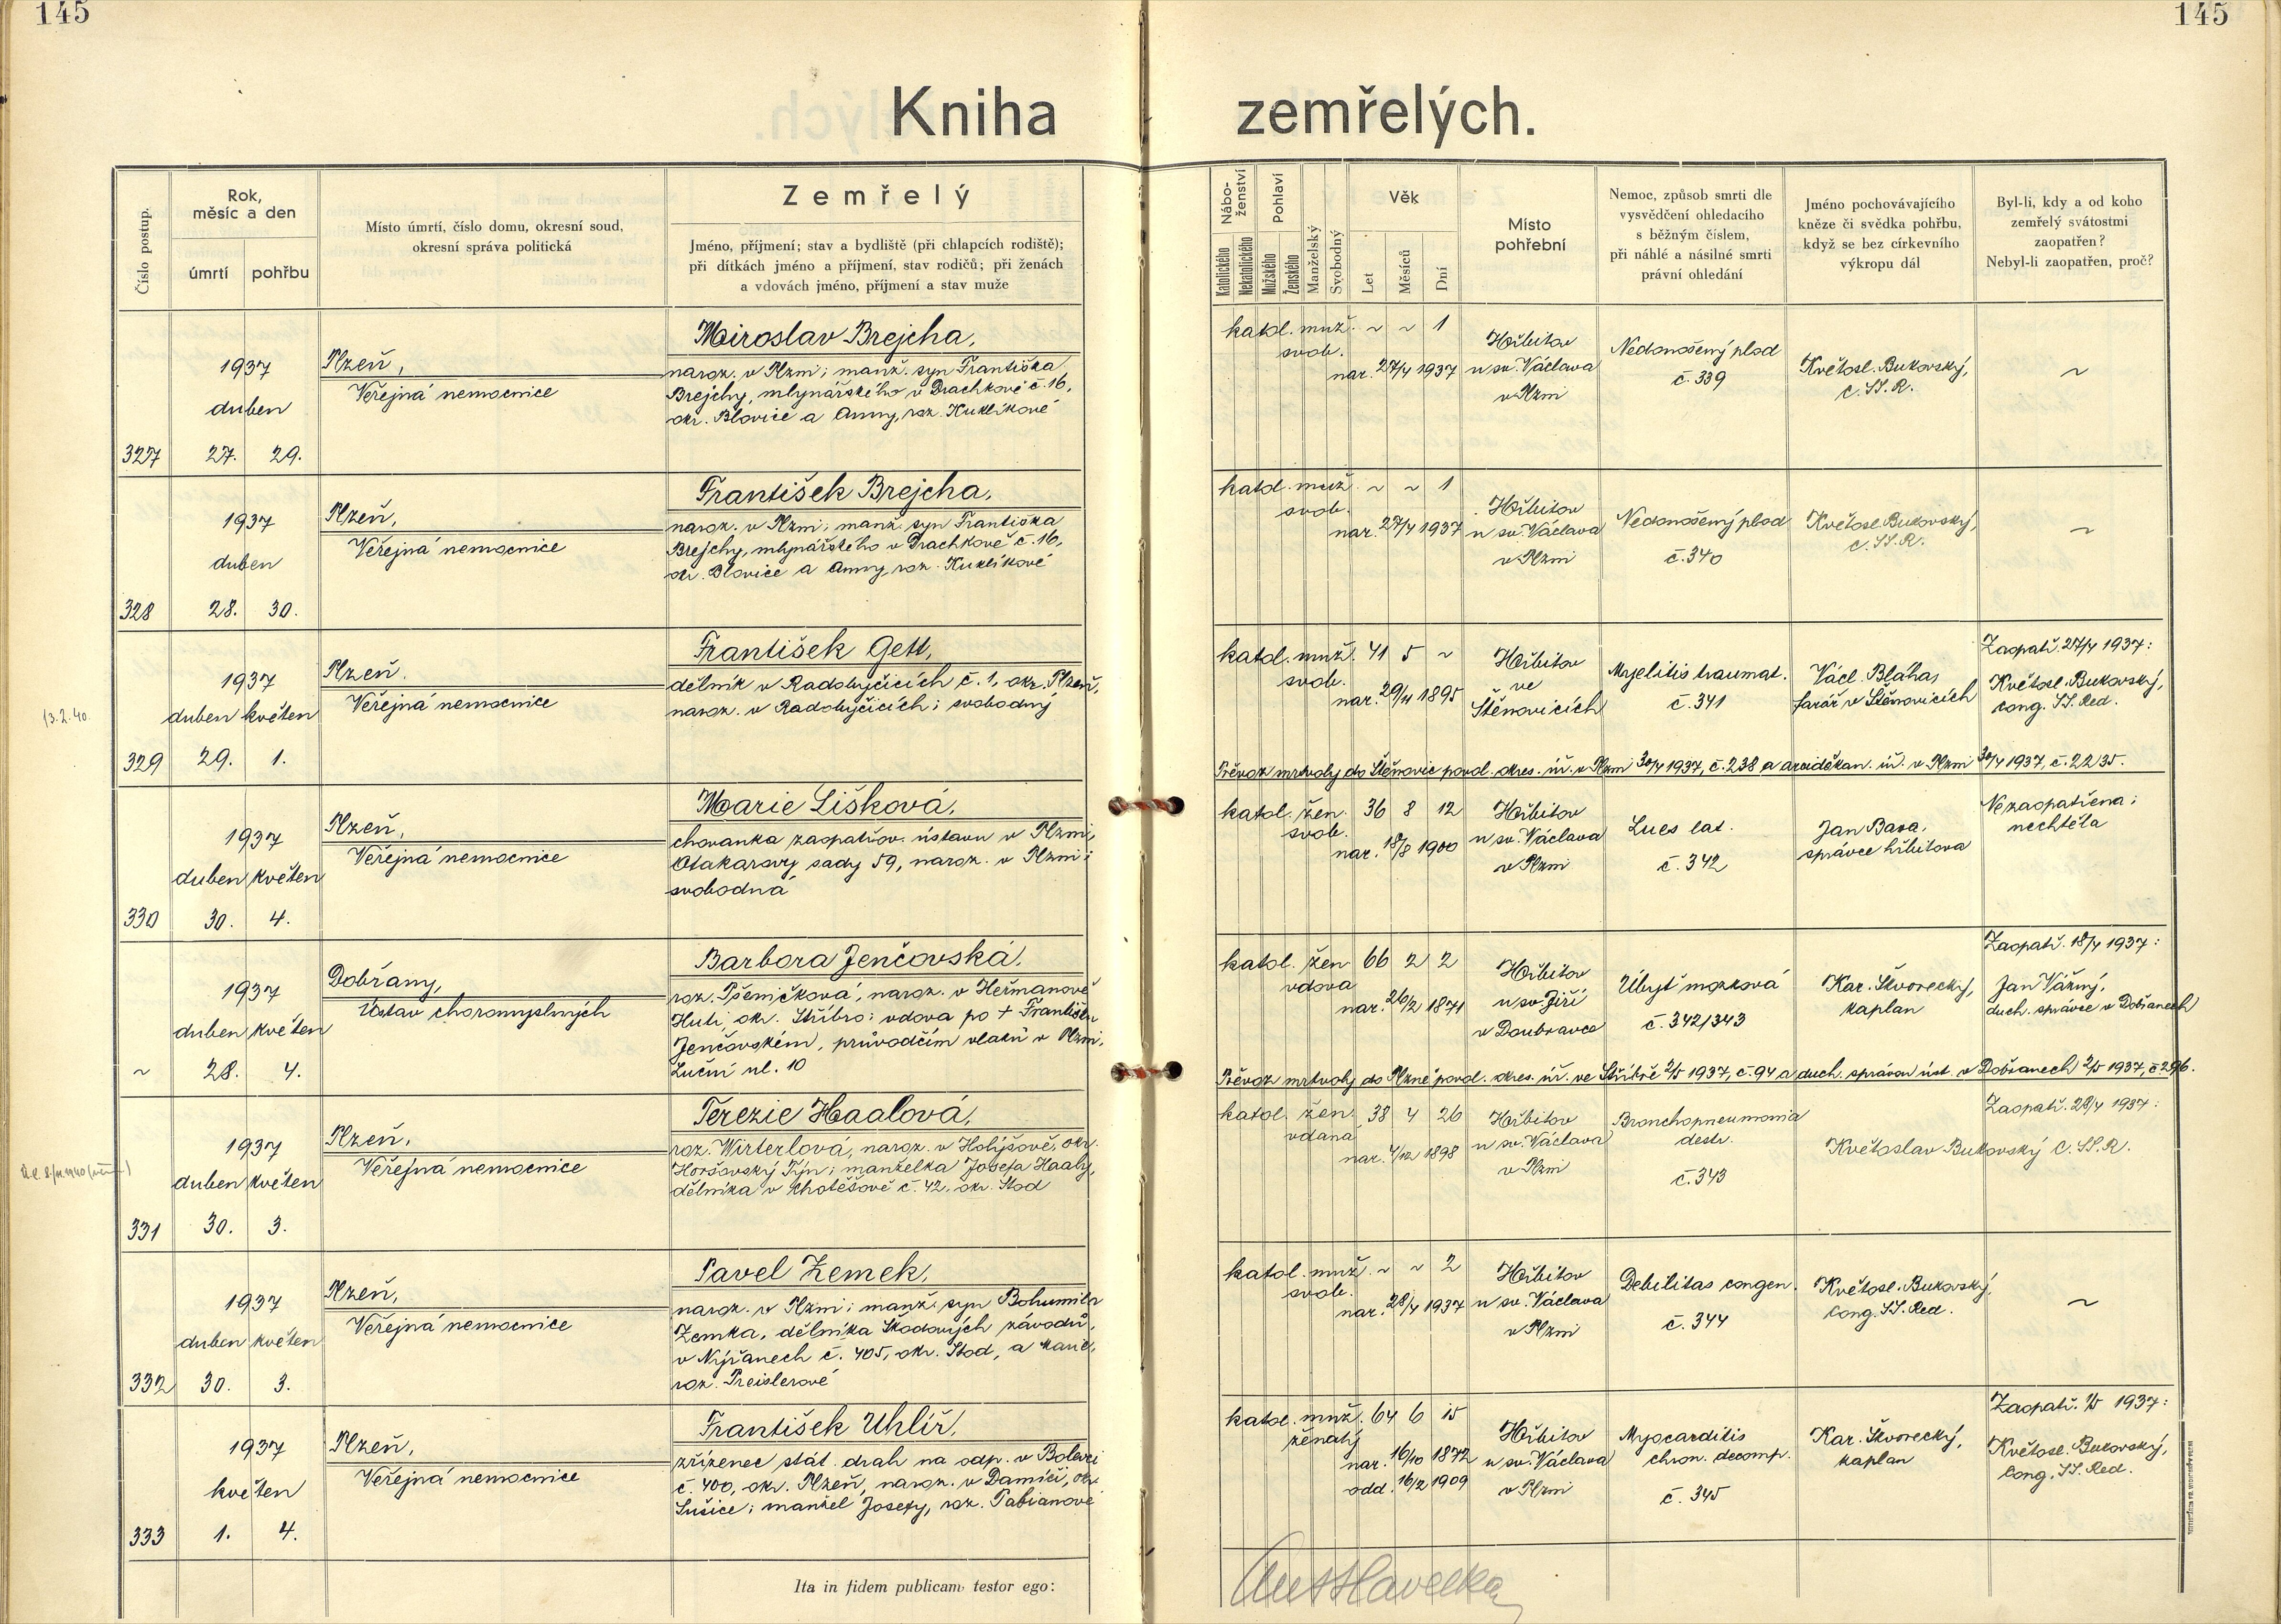 145
145
Kniha zemřelých.
Číslo postup.
Rok,
měsíc a den
úmrtí
pohřbu
Místo úmrtí, číslo domu, okresní soud,
okresní správa politická
Zemřelý
Jméno, příjmení; stav a bydliště (při chlapcích rodiště);
při dítkách jméno a příjmení, stav rodičů; při ženách
a vdovách jméno, příjmení a stav muže
Nábo-
ženství
Katolického
Nekatolického
Pohlaví
Mužského
Ženského
Manželský
Svobodný
Věk
Let
Měsíců
Dní
Místo
pohřební
Nemoc, způsob smrti dle
vysvědčení ohledacího
s běžným číslem,
při náhlé a násilné smrti
právní ohledání
Jméno pochovávajícího
kněze či svědka pohřbu,
když se bez církevního
výkropu dál
Byl-li, kdy a od koho
zemřelý svátostmi
zaopatřen?
Nebyl-li zaopatřen, proč?
327
1937
duben
27. 29.
Plzeň,
Veřejná nemocnice
Miroslav Brejcha,
naroz. v Plzni; manž. syn Františka
Brejchy, mlynářského v Drachkově č. 16,
okr. Blovice a Anny, roz. Kuklíkové
katol. muž. ~ ~ 1
svob.
nar. 27/4 1937
Hřbitov
u sv. Václava
v Plzni
Nedonošený plod
č. 339
Květosl. Bukovský,
C. SS. R.
~
328
1937
duben
28. 30.
Plzeň,
Veřejná nemocnice
František Brejcha,
naroz. v Plzni; manž. syn Františka
Brejchy, mlynářského v Drachkově č. 16,
okr. Blovice a Anny, roz. Kuklíkové
katol. muž. ~ ~ 1
svob.
nar. 27/4 1937
Hřbitov
u sv. Václava
v Plzni
Nedonošený plod
č. 340
Květosl. Bukovský,
C. SS. R.
~
13.2.40.
329
1937
duben květen
29. 1.
Plzeň.
Veřejná nemocnice
František Gett,
dělník v Radobyčicích č. 1, okr. Plzeň,
naroz. v Radobyčicích; svobodný
katol. muž. 41 5 ~
svob.
nar. 29/11 1895
Hřbitov
ve
Štěnovicích
Myelitis traumat.
č. 341
Václ. Bláha,
farář v Štěnovicích
Zaopatř. 27/4 1937:
Květosl. Bukovský,
Cong. SS. Red.
Převoz mrtvoly do Štěnovic povol. okres. úř. v Plzni 30/4 1937, č. 238 a arciděkan. úř. v Plzni 30/4 1937, č. 2235.
330
1937
duben květen
30. 4.
Plzeň,
Veřejná nemocnice
Marie Lišková,
chovanka zaopatřov. ústavu v Plzni,
Otakarovy sady 59, naroz. v Plzni;
svobodná
katol. žen. 36 8 12
svob.
nar. 18/8 1900
Hřbitov
u sv. Václava
v Plzni
Lues lat.
č. 342
Jan Bava,
správce hřbitova
Nezaopatřena;
nechtěla
~
1937
duben květen
28. 4.
Dobřany,
Ústav choromyslných
Barbora Jenčovská,
roz. Pšeničková, naroz. v Heřmanově
Huti, okr. Stříbro; vdova po + Františku
Jenčovském, průvodčím vlaků v Plzni,
Luční ul. 10
katol. žen. 66 2 2
vdova
nar. 26/2 1871
Hřbitov
u sv. Jiří
v Doubravce
Úbyť mozková
č. 342/343
Kar. Škvorecký,
kaplan
Zaopatř. 18/4 1937:
Jan Vážný,
duch. správce v Dobřanech
Převoz mrtvoly do Plzně povol. okres. úř. ve Stříbře 2/5 1937, č. 94 a duch. správou úst. v Dobřanech 2/5 1937, č. 296.
331
1937
duben květen
30. 3.
Plzeň,
Veřejná nemocnice
Terezie Haalová,
roz. Wirterlová, naroz. v Holýšově, okr.
Horšovský Týn; manželka Josefa Haaly,
dělníka v Chotěšově č. 42, okr. Stod
katol. žen. 38 4 26
vdaná
nar. 4/12 1898
Hřbitov
u sv. Václava
v Plzni
Bronchopneumonia
destr.
č. 343
Zaopatř. 28/4 1937:
Květoslav Bukovský C. SS. R.
332
1937
duben květen
30. 3.
Plzeň,
Veřejná nemocnice
Pavel Zemek,
naroz. v Plzni; manž. syn Bohumila
Zemka, dělníka Škodových závodů,
v Nýřanech č. 405, okr. Stod, a Marie,
roz. Preislerové
katol. muž. ~ ~ 2
svob.
nar. 28/4 1937
Hřbitov
u sv. Václava
v Plzni
Debilitas congen.
č. 344
Květosl. Bukovský,
Cong. SS. Red.
~
333
1937
květen
1. 4.
Plzeň,
Veřejná nemocnice
František Uhlíř,
zřízenec stát. drah na odp. v Bolevci
č. 400, okr. Plzeň, naroz. v Damíči, okr.
Sušice; manžel Josefy, roz. Fabianové
katol. muž. 64 6 15
ženatý
nar. 16/10 1872
odd. 16/2 1909
Hřbitov
u sv. Václava
v Plzni
Myocarditis
chron. decomp.
č. 345
Kar. Škvorecký,
kaplan
Zaopatř. 1/5 1937:
Květosl. Bukovský,
Cong. SS. Red.
Ita in fidem publicam testor ego: